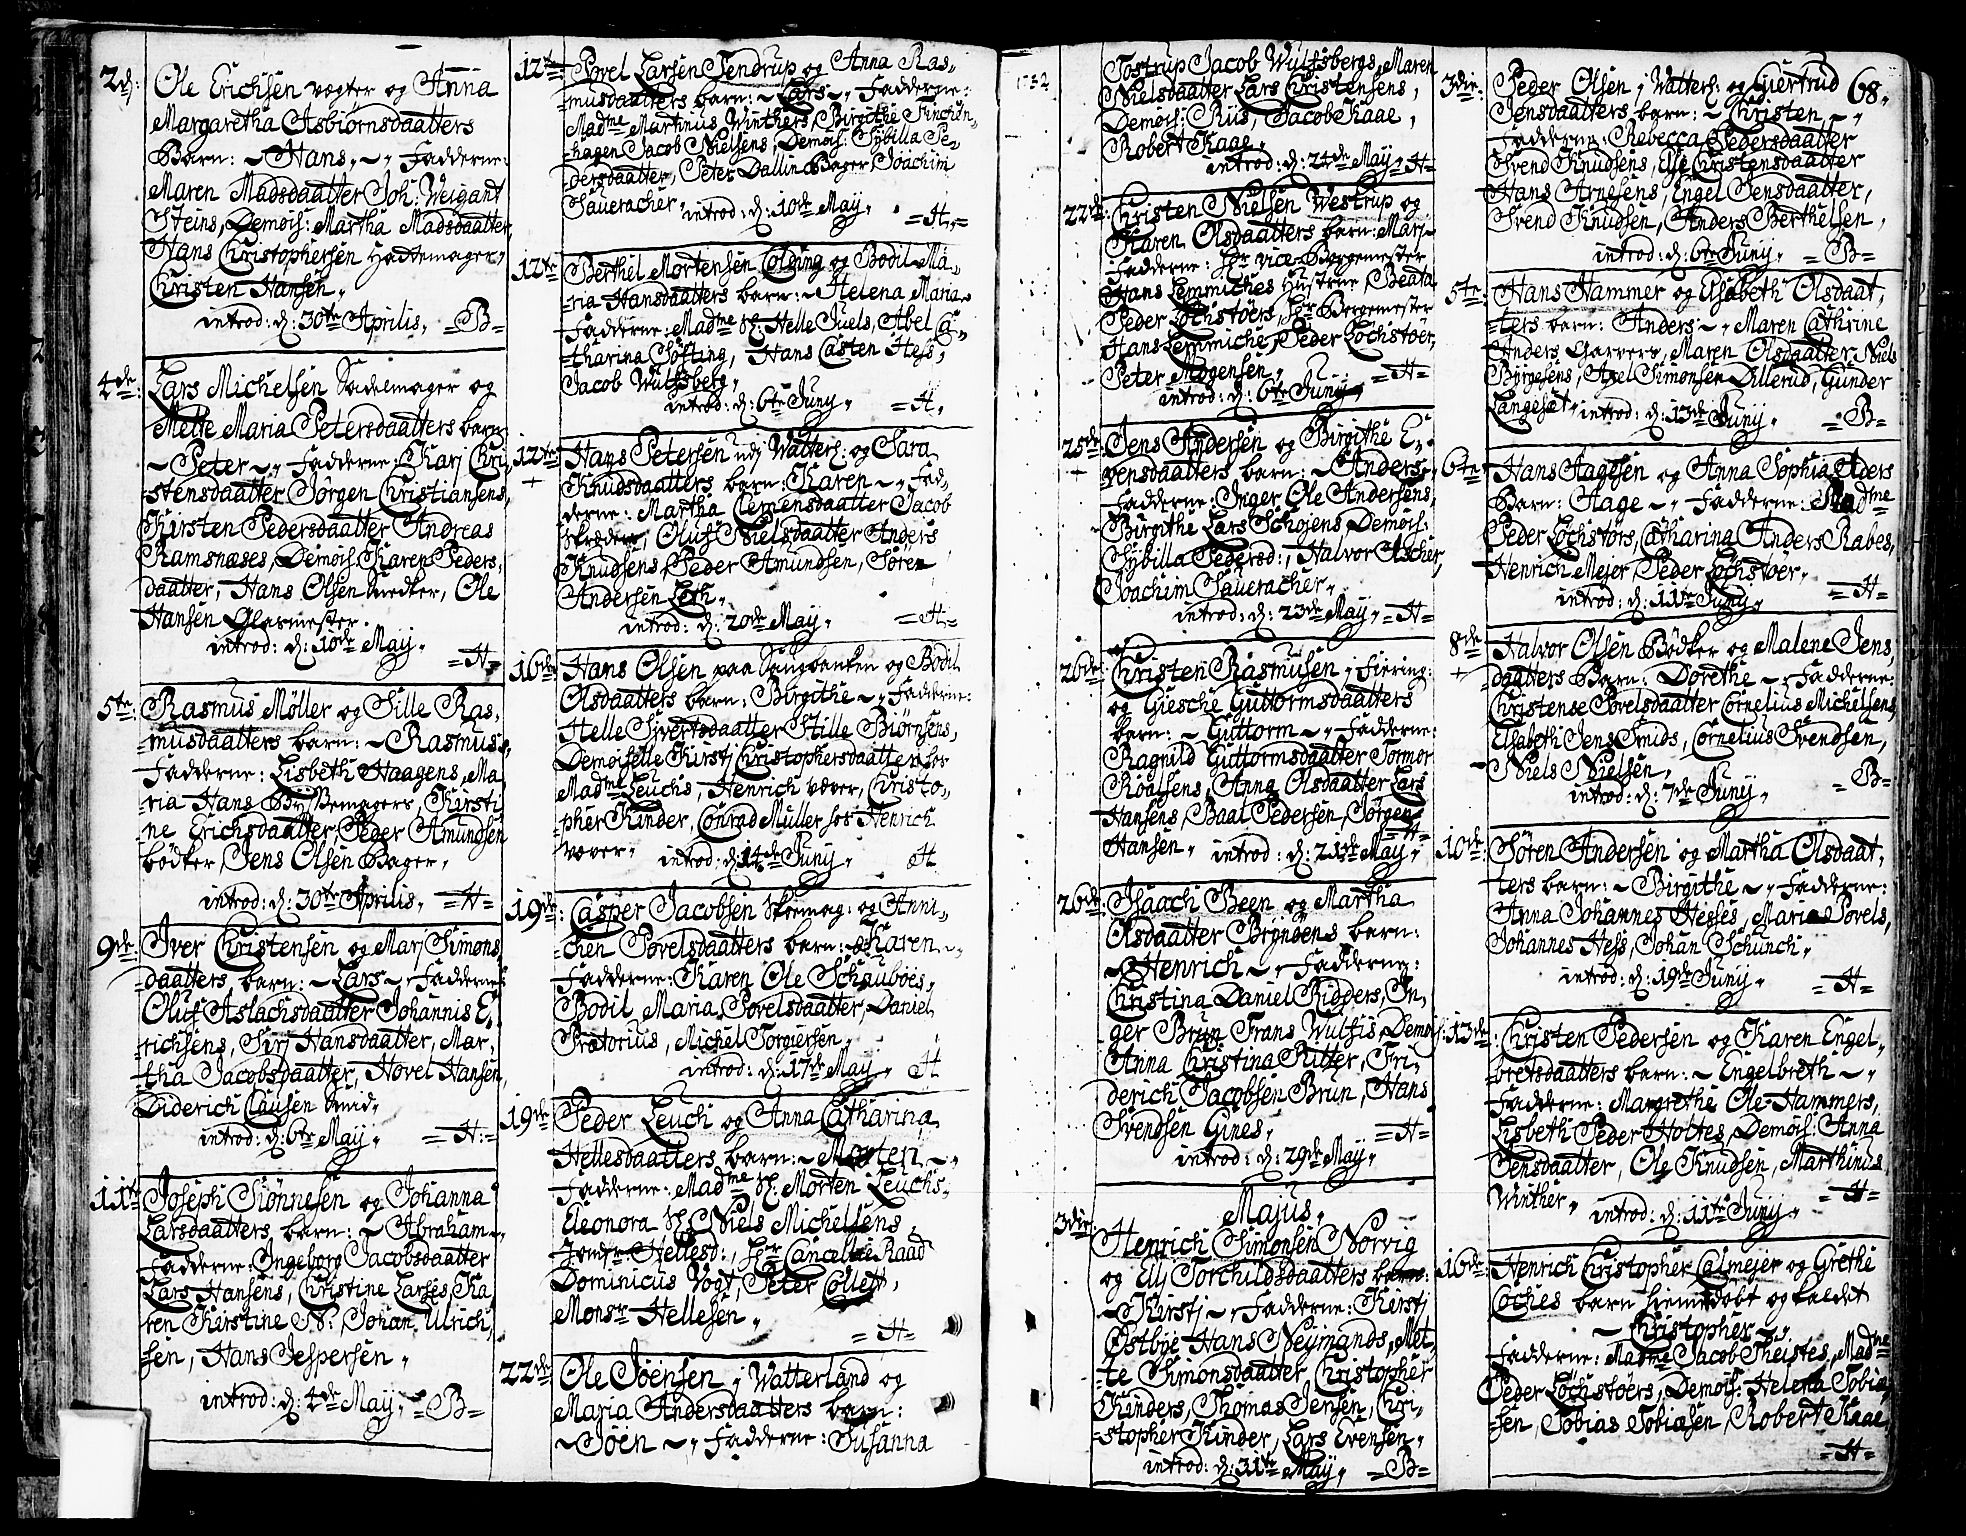 2d:
Ole Erichsen vægter og Anna
Margaretha Asbiørnsdaatters
Barn: ~ Hans ~ Fadderne:
Maren Madsdaatter Joh: Weigant
Steins, Demois: Martha Madsdaatter,
Hans Christophersen Hattemager,
Christen Hansen,
introd: d: 30te Aprilis, =B=
4de:
Lars Michelsen Sadelmager og
Mette Maria Petersdaatters barn
~ Peter ~ Fadderne: Karj Chri,
stensdaatter Jørgen Christiansens,
Kirsten Pedersdaatter Andreas
Ramsnæses, Demois: Karen Peders,
daatter, Hans Olsen Snedker, Ole
Hansen Glasmester.
introd: d: 10de May, =H=
5te:
Rasmus Møller og Sille Ras,
musdaatters barn: ~ Rasmus ~
Fadderne: Lisbeth Haagens, Ma
ria Hans Bÿssemagers, Kirsti
ne Erichsdaatter, Peder Amundsen
bødker, Jens Olsen Bager,
introd: d: 30te Aprilis, =H=
9de:
Iver Christensen og Marj Simons
daatters barn: ~ Lars ~ Fadderne:
Oluf Aslachsdaatter Johannis E,
richsens, Sirj Hansdaatter, Mar,
tha Jacobsdaatter, Hovel Hansen,
Diderich Clausen Smid,
introd: d: 6te May, =H=
11te
Joseph Siønnesen og Johanna
Larsdaatters barn: ~ Abraham ~
Fadderne: Ingeborg Jacobsdaatter
Lars Hansens, Christine Larses, Ka
ren Kirstine N:, Johan Ulrich,
sen, Hans Jespersen,
introd: d: 4de May, =B=
12te
Povel Larsen Jendrup og Anna Ras,
musdaatters barn: ~ Lars ~ Fadderne:
Madme Martinus Winthers, Birgithe Finchen,
hagen Jacob Nielsens, Demois: Sybilla Pe,
dersdaatter, Peter Dallin Bager, Joachim
Saueracher, introd: d: 10de May, =H=
12te
Berthel Mortensen Colding og Bodil Ma,
ria Hansdaatters barn: ~ Helena Maria ~
Fadderne: Madme Sl: Helle Juels, Abel Ca,
tharina Søfting, Hans Casten Hess,
Jacob Wulfsberg,
introd: d: 6te Juny, =H=
12te +
Hans Petersen udj Watterl: og Sara
Knudsdaatters barn: Karen ~ Fad,
derne: Martha Clemensdaatter Jacob
Skreders, Oluf Nielsdaatter Anders
Knudsens, Peder Amundsen, Søren
Andersen Lech,
introd: d: 20de May, =H=
16de
Hans Olsen paa Sangbanken og Bodil
Olsdaatters barn: Birgithe ~ Fadderne:
Helle Sivertsdaatter Stille Biørnsens,
Demoiselle Kirstj Christophersdaatter hos
Madme Leuchs, Henrich væver, Christo,
pher Kinder, Conrad Muller hos Henrich
væver, introd: d: 14de Juny, H
19de:
Casper Jacobsen Skoemag: og Anni,
chen Povelsdaatters barn: ~ Karen ~
Fadderne: Karen Ole Schauboes,
Bodil Maria Povelsdaatter, Daniel
Prætorius, Michel Torgiersen,
introd: d: 17de May, H
19de
Peder Leuch og Anna Catharina
Hellesdaatters barn: ~ Morten ~
Fadderne: Madme Sl: Morten Leuchs,
Eleonora Sl: Niels Michelsens,
Jomfr Hellesd:, Hr Cancellie Raad
Dominicus Vogt, Peter Collett,
Monsr Hellesen,
=H=
22de
Ole Joensen j Watterland og
Maria Andersdaatters barn:
~ Joen ~ Fadderne: Susanna
1732
Tostrup Jacob Wulfsbergs, Maren
Nielsdaatter Lars Christensens,
Demois: Riis, Jacob Kaae,
Robert Kaae,
introd: d: 24de May =H=
22de:
Christen Nielsen Westrup og
Karen Olsdaatters barn: Marj ~
Fadderne: Hr vice Borgemester
Hans Lemmiches Hustrue, Beata
Peder Lochstørs, Hr Borgemester
Hans Lemmiche, Peder Lochstøer,
Peter Mogensen, =H=
introd: d: 6te Juny,
25de: +
Jens Andersen og Birgithe E,
vensdaatters barn: ~ Anders ~
Fadderne: Inger Ole Andersens,
Birgithe Lars Schojens, Demois:
Sybilla Pedersd:, Halvor Ascher,
Joachim Saueracher,
introd: d: 23de May, =H=
26de:
Christen Rasmusen j Fiering:
og Giesche Guttormsdaatters
barn: ~ Guttorm ~ Fadderne:
Ragnild Guttormsdaatter Tormor
Roalsens, Anna Olsdaatter Lars
Hansens, Baal Pedersen, Jørgen
Hansen, introd: d: 21de May, =H=
26de:
Isaach Been og Martha
Olsdaatter Bryndens barn:
~ Henrich ~ Fadderne:
Christina Daniel Ridders, In,
ger Brun Frans Wulfis, Demois:
Anna Christina Ritter, Fri,
derich Jacobsen Brun, Hans
Svendsen Gines, =H=
introd: d: 29de May,
Majus,
3die:
Henrich Simonsen Norvig
og Ellj Torchildsdaatters barn:
~ Kirstj ~ Fadderne: Kirstj
Ostbye Hans Neÿmands, Met,
te Simonsdaatter, Christopher
Kinders, Thomas Jensen, Chri,
stopher Kinder, Lars Evensen,
introd: d: 31te May, =B=
68.
3die:
Peder Olsen j Watterl: og Giertrud
Jensdaatters barn: ~ Christen ~
Fadderne: Rebecca Pedersdaatter
Svend Knudsens, Else Christensdaatter
Hans Arnesens, Engel Jensdaatter,
Svend Knudsen, Anders Berthelsen,
introd: d: 6te Juny, =B=
5te:
Hans Hammer og Elsabeth Olsdaat,
ters barn: Anders ~ Maren Cathrine
Anders Garvers, Maren Olsdaatter Niels
Børgesens, Axel Simonsen Dillerud, Gunder
Langeset, introd: d: 13de Juny, =B=
6te:
Hans Aagesen og Anna Sophia Elders
Barn: Aage ~ Fadderne: Madme
Peder Lochstørs, Catharina Anders Rabes,
Henrich Mejer, Peder Lochstøer,
introd: d: 11te Juny, =H=
8de +
Halvor Olsen Bødker og Malene Jens,
daatters Barn: Dorethe ~ Fadderne:
Christense Povelsdaatter Cornelius Michelsens,
Elsabeth Jens Smids, Cornelius Svendsen,
Niels Nielsen,
introd: d: 7de Juny, =B=
10de:
Søren Andersen og Martha Olsdaat,
ters barn: ~ Birgithe ~ Fadderne:
Anna Johannes Hesses, Maria Povels,
Johannes Hess, Johan Schunch,
introd: d: 19de Juny, =H=
13de:
Christen Pedersen og Karen Engel,
bretsdaatters barn: ~ Engelbreth ~
Fadderne: Margrethe Ole Hammers,
Lisbeth Peder Holtes, Demois: Anna
Jensdaatter, Ole Knudsen, Marthinus
Winther, introd: d: 11te Juny, =H=
16de:
Henrich Christopher Calmejer og Grethe
Coches barn hiemedøbt og kaldet
~ Christopher ~
Fadderne: Madme Jacob Theistes, Madme
Peder Lochstøers, Demois: Helena Tobia,
sen, Tobias Tobiæsen, Robert Kaae,
=H=